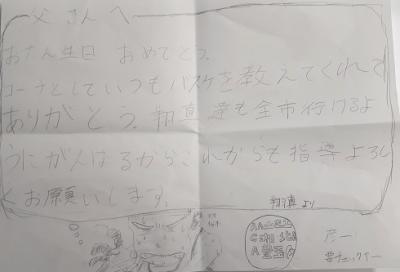 父さんへ
おたん生日 おめでとう。
コーチとしていつもバスケを教えてくれて
ありがとう。翔真達も全市行けるよ
うにがんばるからこれからも指導よろし
くお願いします。
翔真より